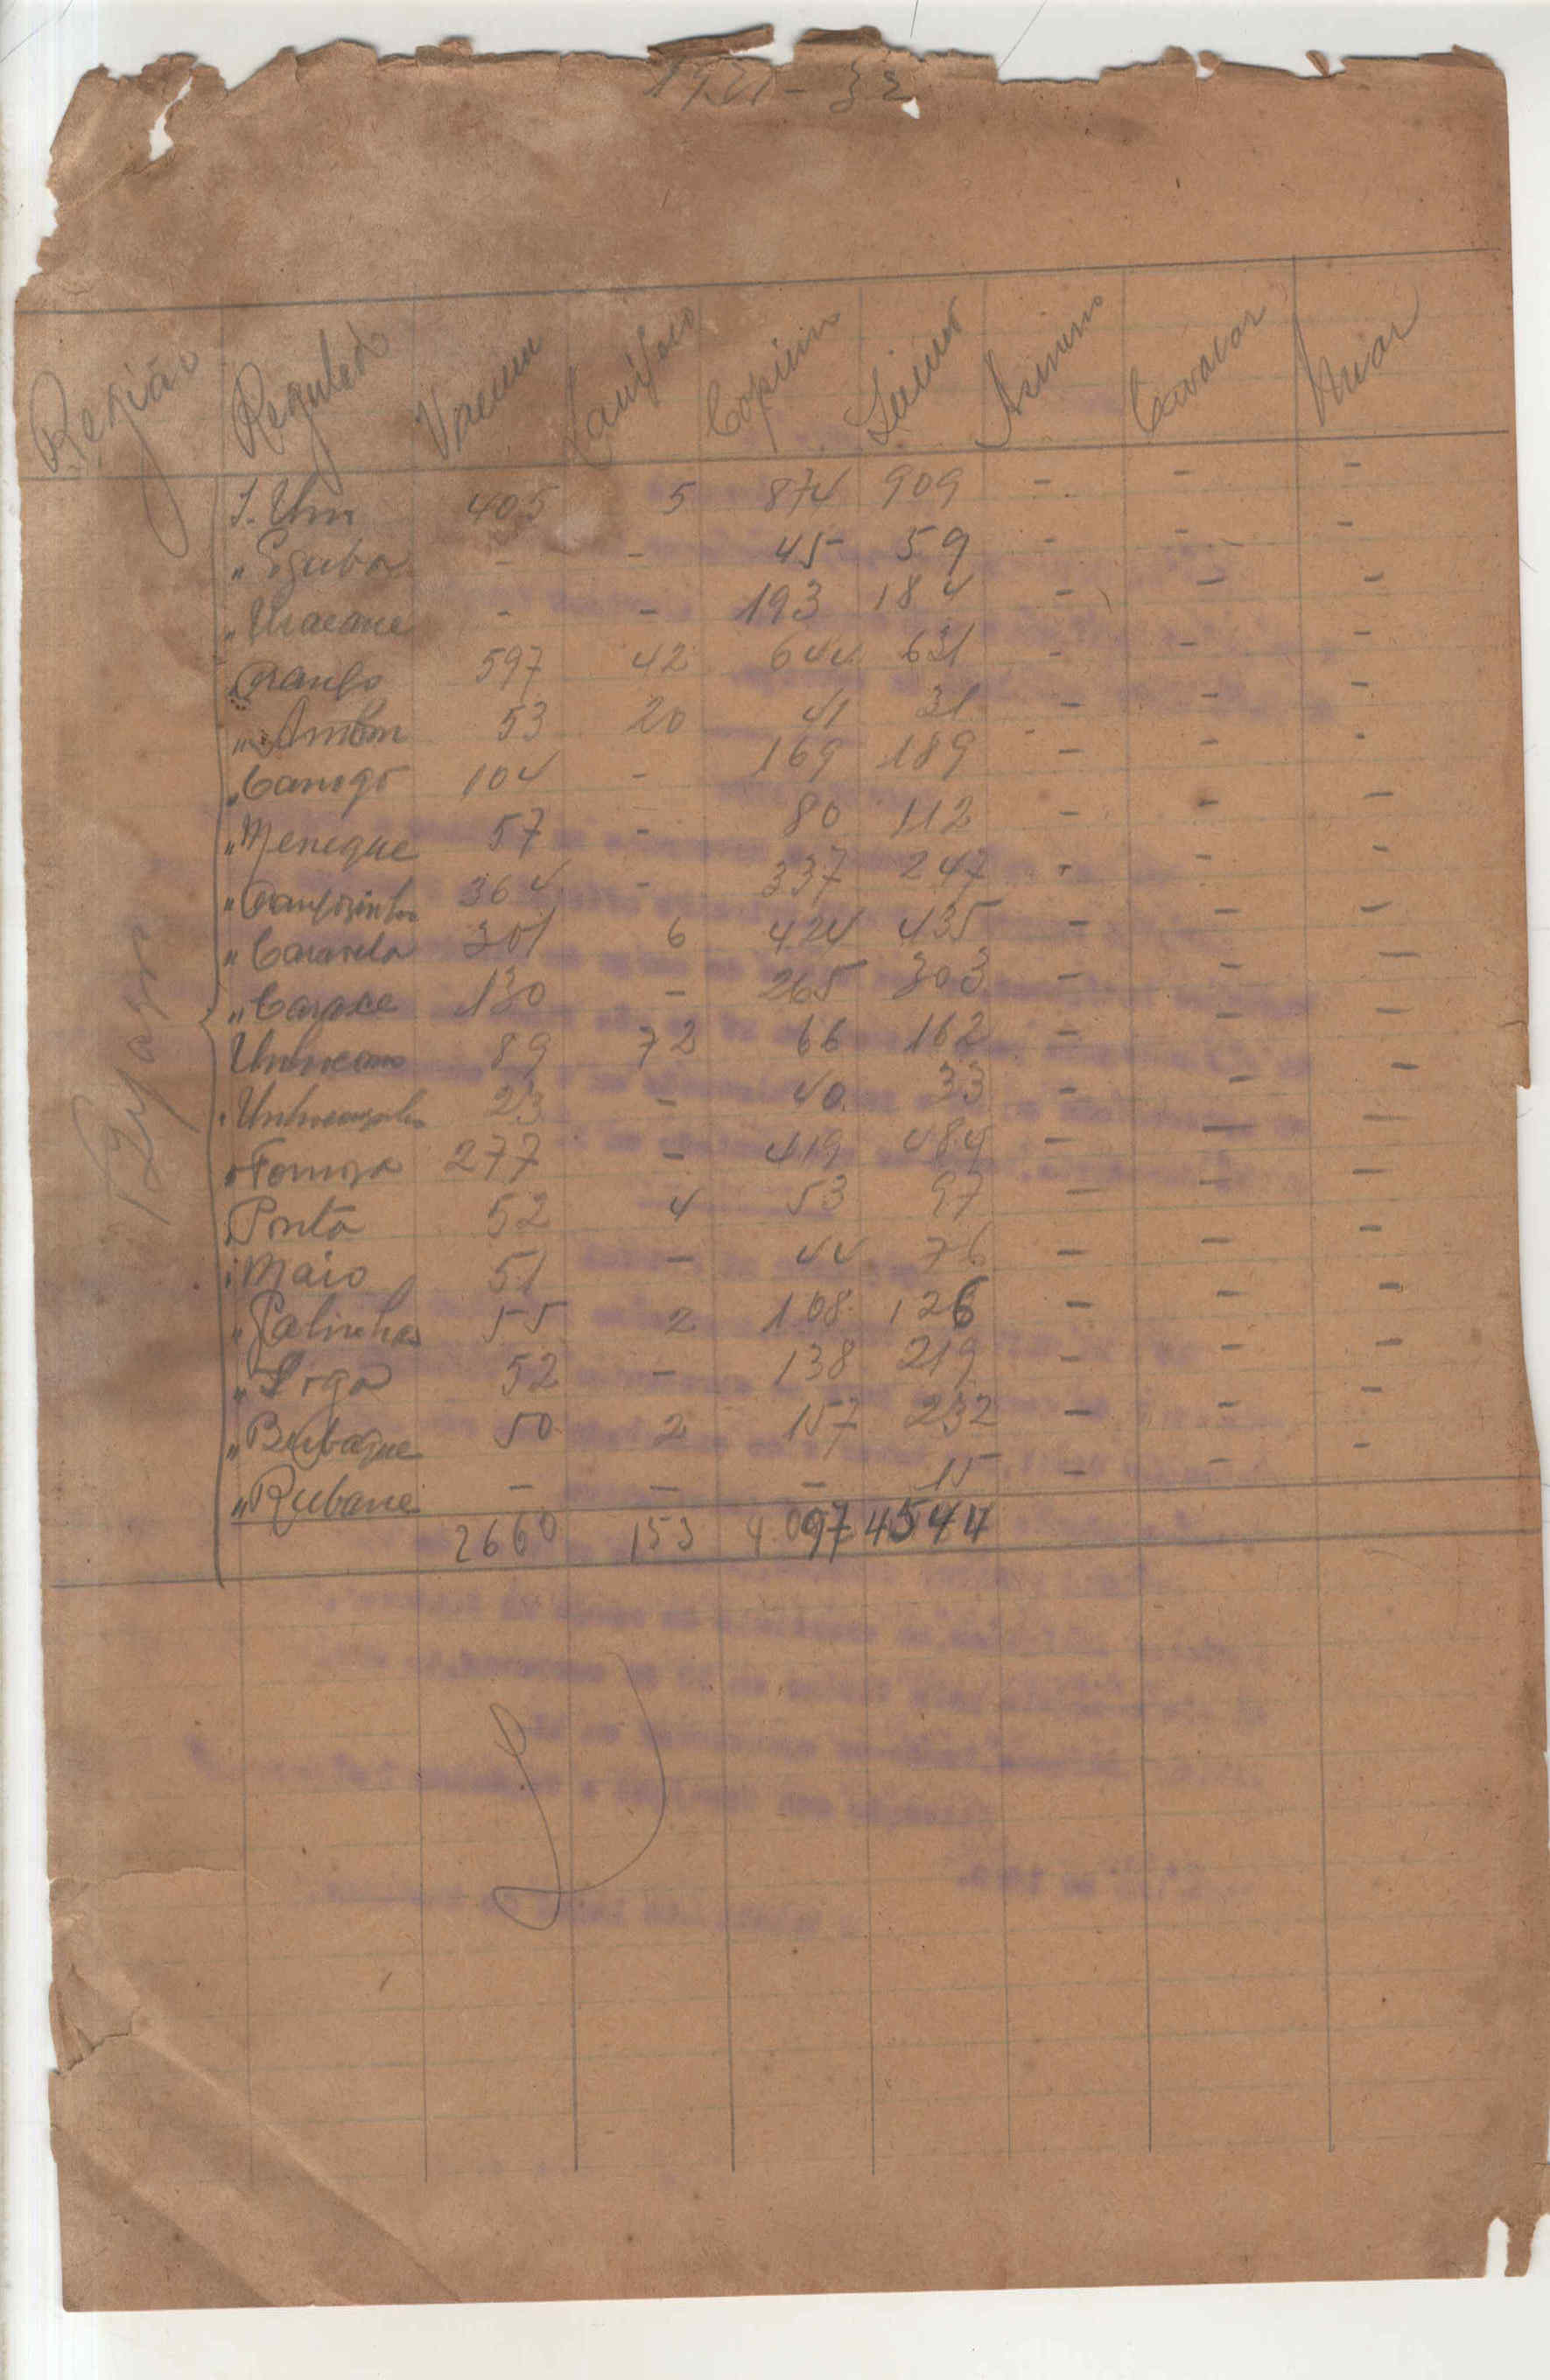 1931 - 32
Região Regulado Vacum Lanígero Caprino Suino Asinino Cavalar Muar
Bijagoz
I. Uno 405 5 874 909 - - -
" Eguba - - 45 59 - - -
" Uracane - - 193 184 - - -
" Orango 597 42 644 631 - - -
" Ambon 53 20 41 31 - - -
" Canogo 104 - 169 189 - - -
" Meneque 57 - 80 112 - - -
" Orangosinho 364 - 337 247 - - -
" Caravela 301 6 424 435 - - -
" Carache 130 - 265 303 - - -
Unhocomo 89 72 66 162 - - -
" Unhocomosinho 23 - 40 33 - - -
" Formosa 277 - 419 484 - - -
" Ponta 52 4 53 97 - - -
" Maio 51 - 44 76 - - -
" Galinhas 55 2 108 126 - - -
" Soga 52 - 138 219 - - -
" Bubaque 50 2 157 232 - - -
" Rubane - - - 15 - - -
2660 153 4.097 4544